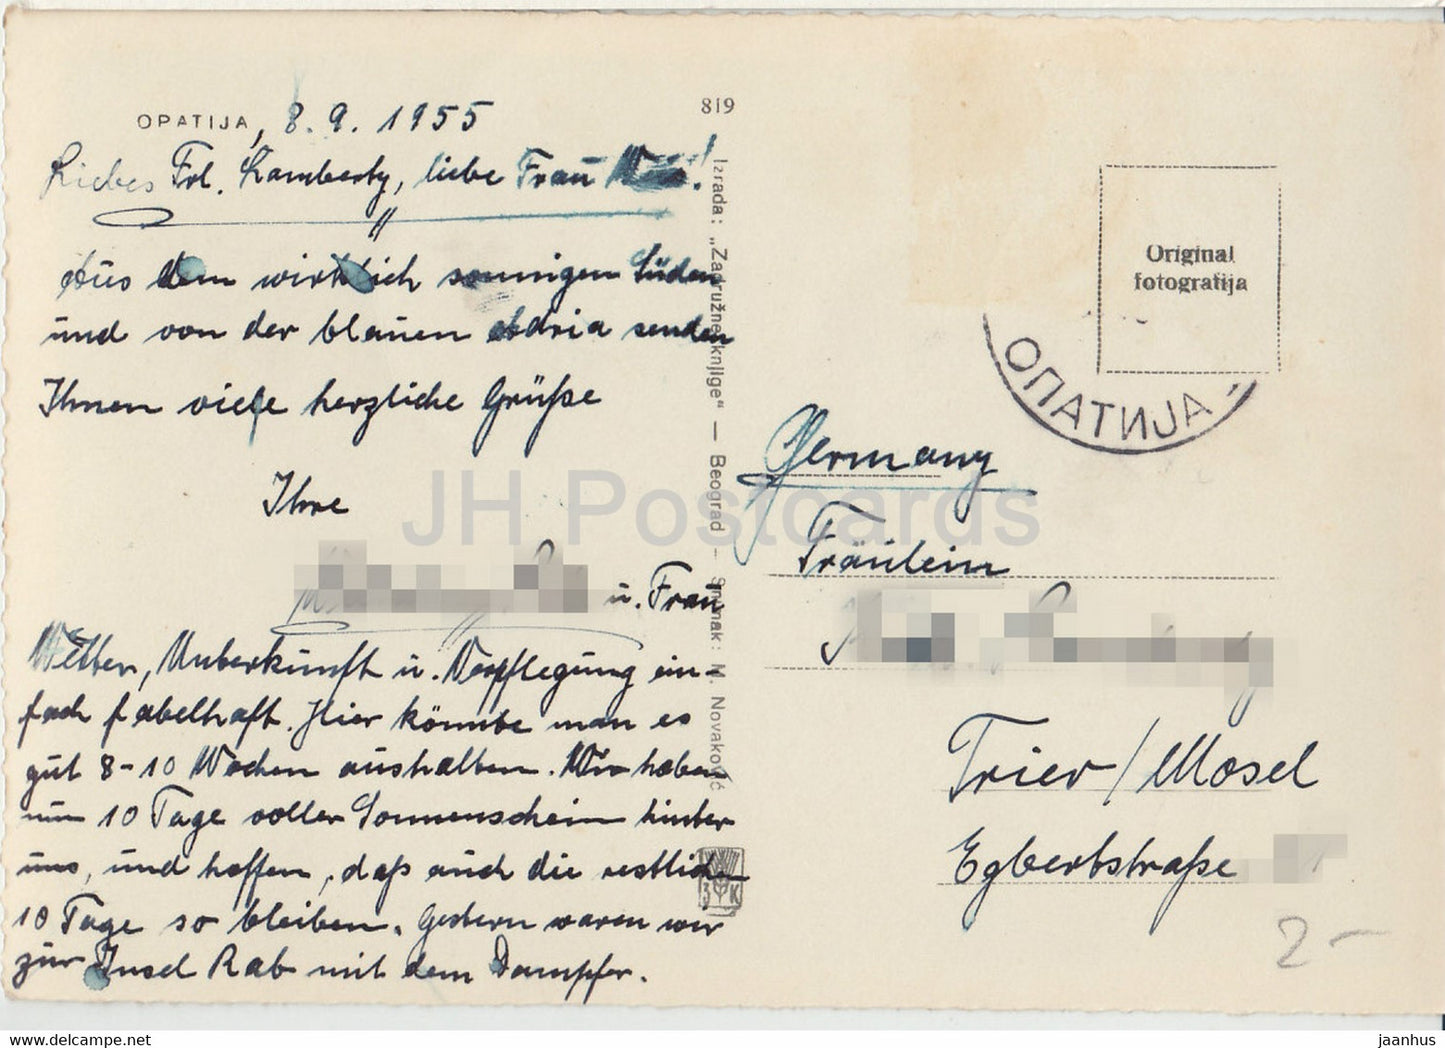 OPATIJA, 8. 9. 1955
819
Liebes Frl. Lamberty, liebe Frau
Aus dem wirklich sonnigen Süden
und von der blauen Adria senden
Ihnen viele herzliche Grüße
Ihre
u. Frau
Wetter, Unterkunft u. Verpflegung ein-
fach fabelhaft. Hier könnte man es
gut 8-10 Wochen aushalten. Wir haben
nun 10 Tage voller Sonnenschein hinter
uns, und hoffen, daß auch die restlichen
10 Tage so bleiben. Gestern waren wir
zur Insel Rab mit dem Dampfer.
Izrada: „Zadružne knjige" — Beograd — Snimak: M. Novaković
Z K
Original
fotografija
ОПАТИЈА
Germany
Fräulein
Trier/Mosel
Egbertstraße
2-
JH Postcards
www.delcampe.net
jaanhus